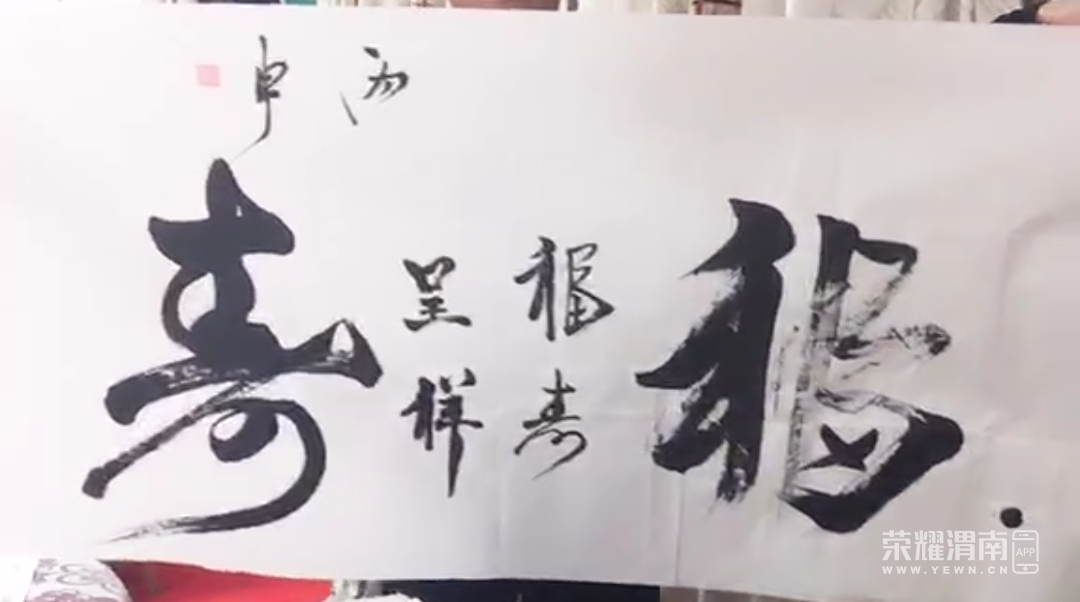 福
福寿
呈祥
寿
丙申
荣耀渭南 APP
WWW.YEWN.CN